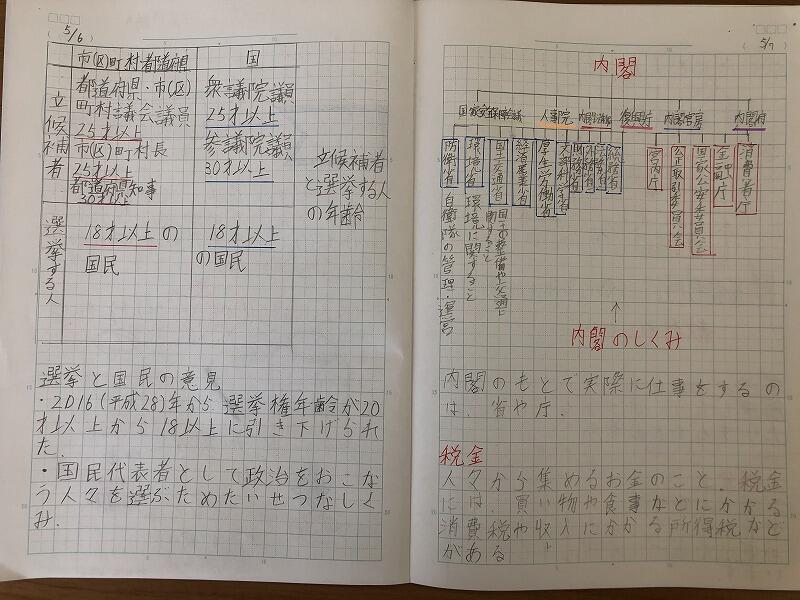 5/6
市(区)町村都道府県
国
立候補者
都道府県・市(区)
町村議会議員
25才以上
市(区)町村長
25才以上
都道府県知事
30才以上
衆議院議員
25才以上
参議院議員
30才以上
立候補者
と選挙する人
の年齢
選挙する人
18才以上の
国民
18才以上
の国民
選挙と国民の意見
・2016(平成28)年から選挙権年齢が20
才以上から18以上に引き下げられ
た.
・国民代表者として政治をおこな
う人々を選ぶためたいせつなしく
み.
5/7
内閣
国家安全保障会議
人事院
内閣法制局
復興庁
内閣官房
内閣府
消費者庁
金融庁
国家公安委員会
公正取引委員会
宮内庁
総務省
法務省
外務省
財務省
文部科学省
厚生労働省
経済産業省
国土交通省
国土の整備や交通に
関すること
環境省
環境に関すること
防衛省
自衛隊の管理・運営
↑
内閣のしくみ
内閣のもとで実際に仕事をするの
は、省や庁.
税金
人々から集めるお金のこと、税金
には、買い物や食事などにかかる
消費税や収入にかかる所得税など
がある